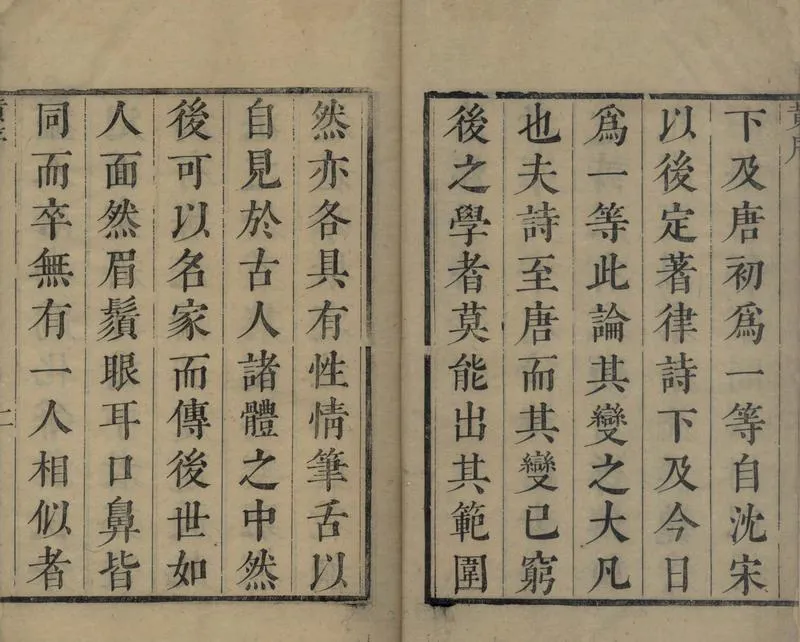 下及唐初爲一等自沈宋
以後定著律詩下及今日
爲一等此論其變之大凡
也夫詩至唐而其變已窮
後之學者莫能出其範圍
然亦各具有性情筆舌以
自見於古人諸體之中然
後可以名家而傳後世如
人面然眉鬚眼耳口鼻皆
同而卒無有一人相似者